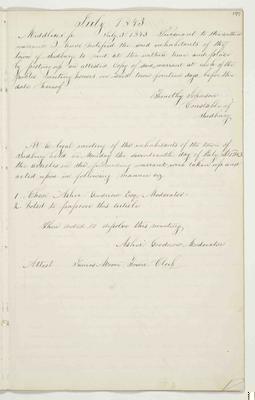 July 1843
Middlesex ss July 3d 1843 Pursuant to the within
warrant I have notified the said inhabitants of the
town of Sudbury to meet at the within time and place
by posting up an attested copy of said warrant at each of the
Public Meeting houses in said town fourteen days before the
date hereof
Timothy
Constable of
Sudbury
At a legal meeting of the inhabitants of the town of
Sudbury held on Monday the seventeenth day of July 1843
the articles in the warrant were taken up and
acted upon in following manner viz
1. Chose Asher Goodnow Esq Moderator
2. Voted to this article
Then voted to dissolve this meeting
Asher Goodnow Moderator
Attest James Moore Town Clerk